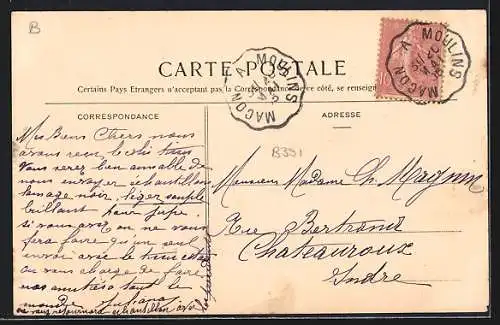 B
CARTE POSTALE
Certains Pays Etrangers n'acceptant pas la Correspondance de ce côté, se renseigner
CORRESPONDANCE
ADRESSE
MACON A MOULINS
MACON A MOULINS
B351
Mes Biens Chers nous
avons reçu le colis
vous serez bien aimable de
nous envoyer échantillon
noir, tiger souple
brillant pour jupe
si vous avez on ne vous
fera faire qu'un seul
envoi avec le
ou vous charge de faire
nos amitiés à tout le
monde
échantillon avec
Monsieur Madame Ch. Magnin
Rue Bertrand
Chateauroux
Indre